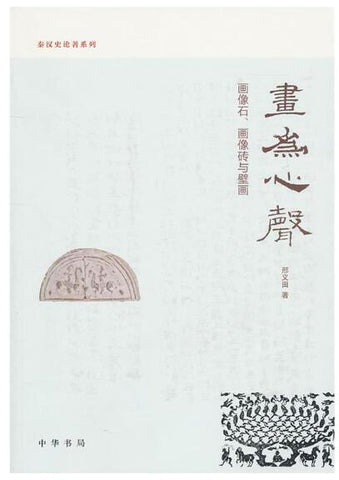 秦汉史论著系列
畫為心聲
画像石、画像砖与壁画
邢义田 著
中华书局